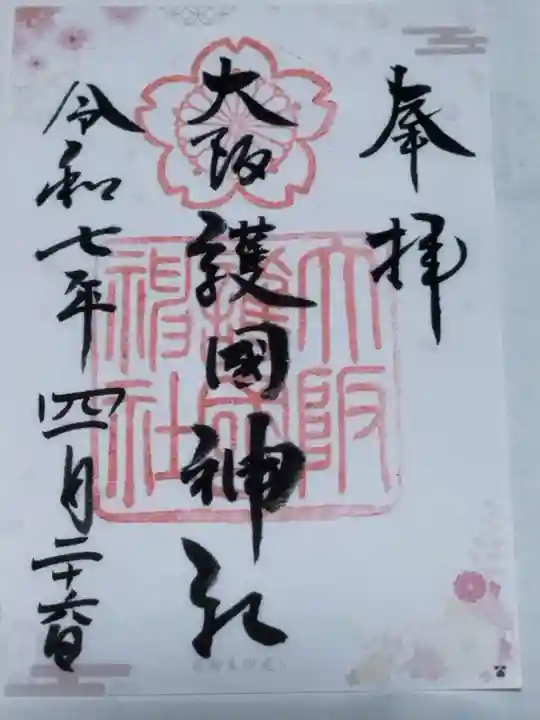 奉拝
大阪護國神社
令和七年四月二十六日
大阪護國神社